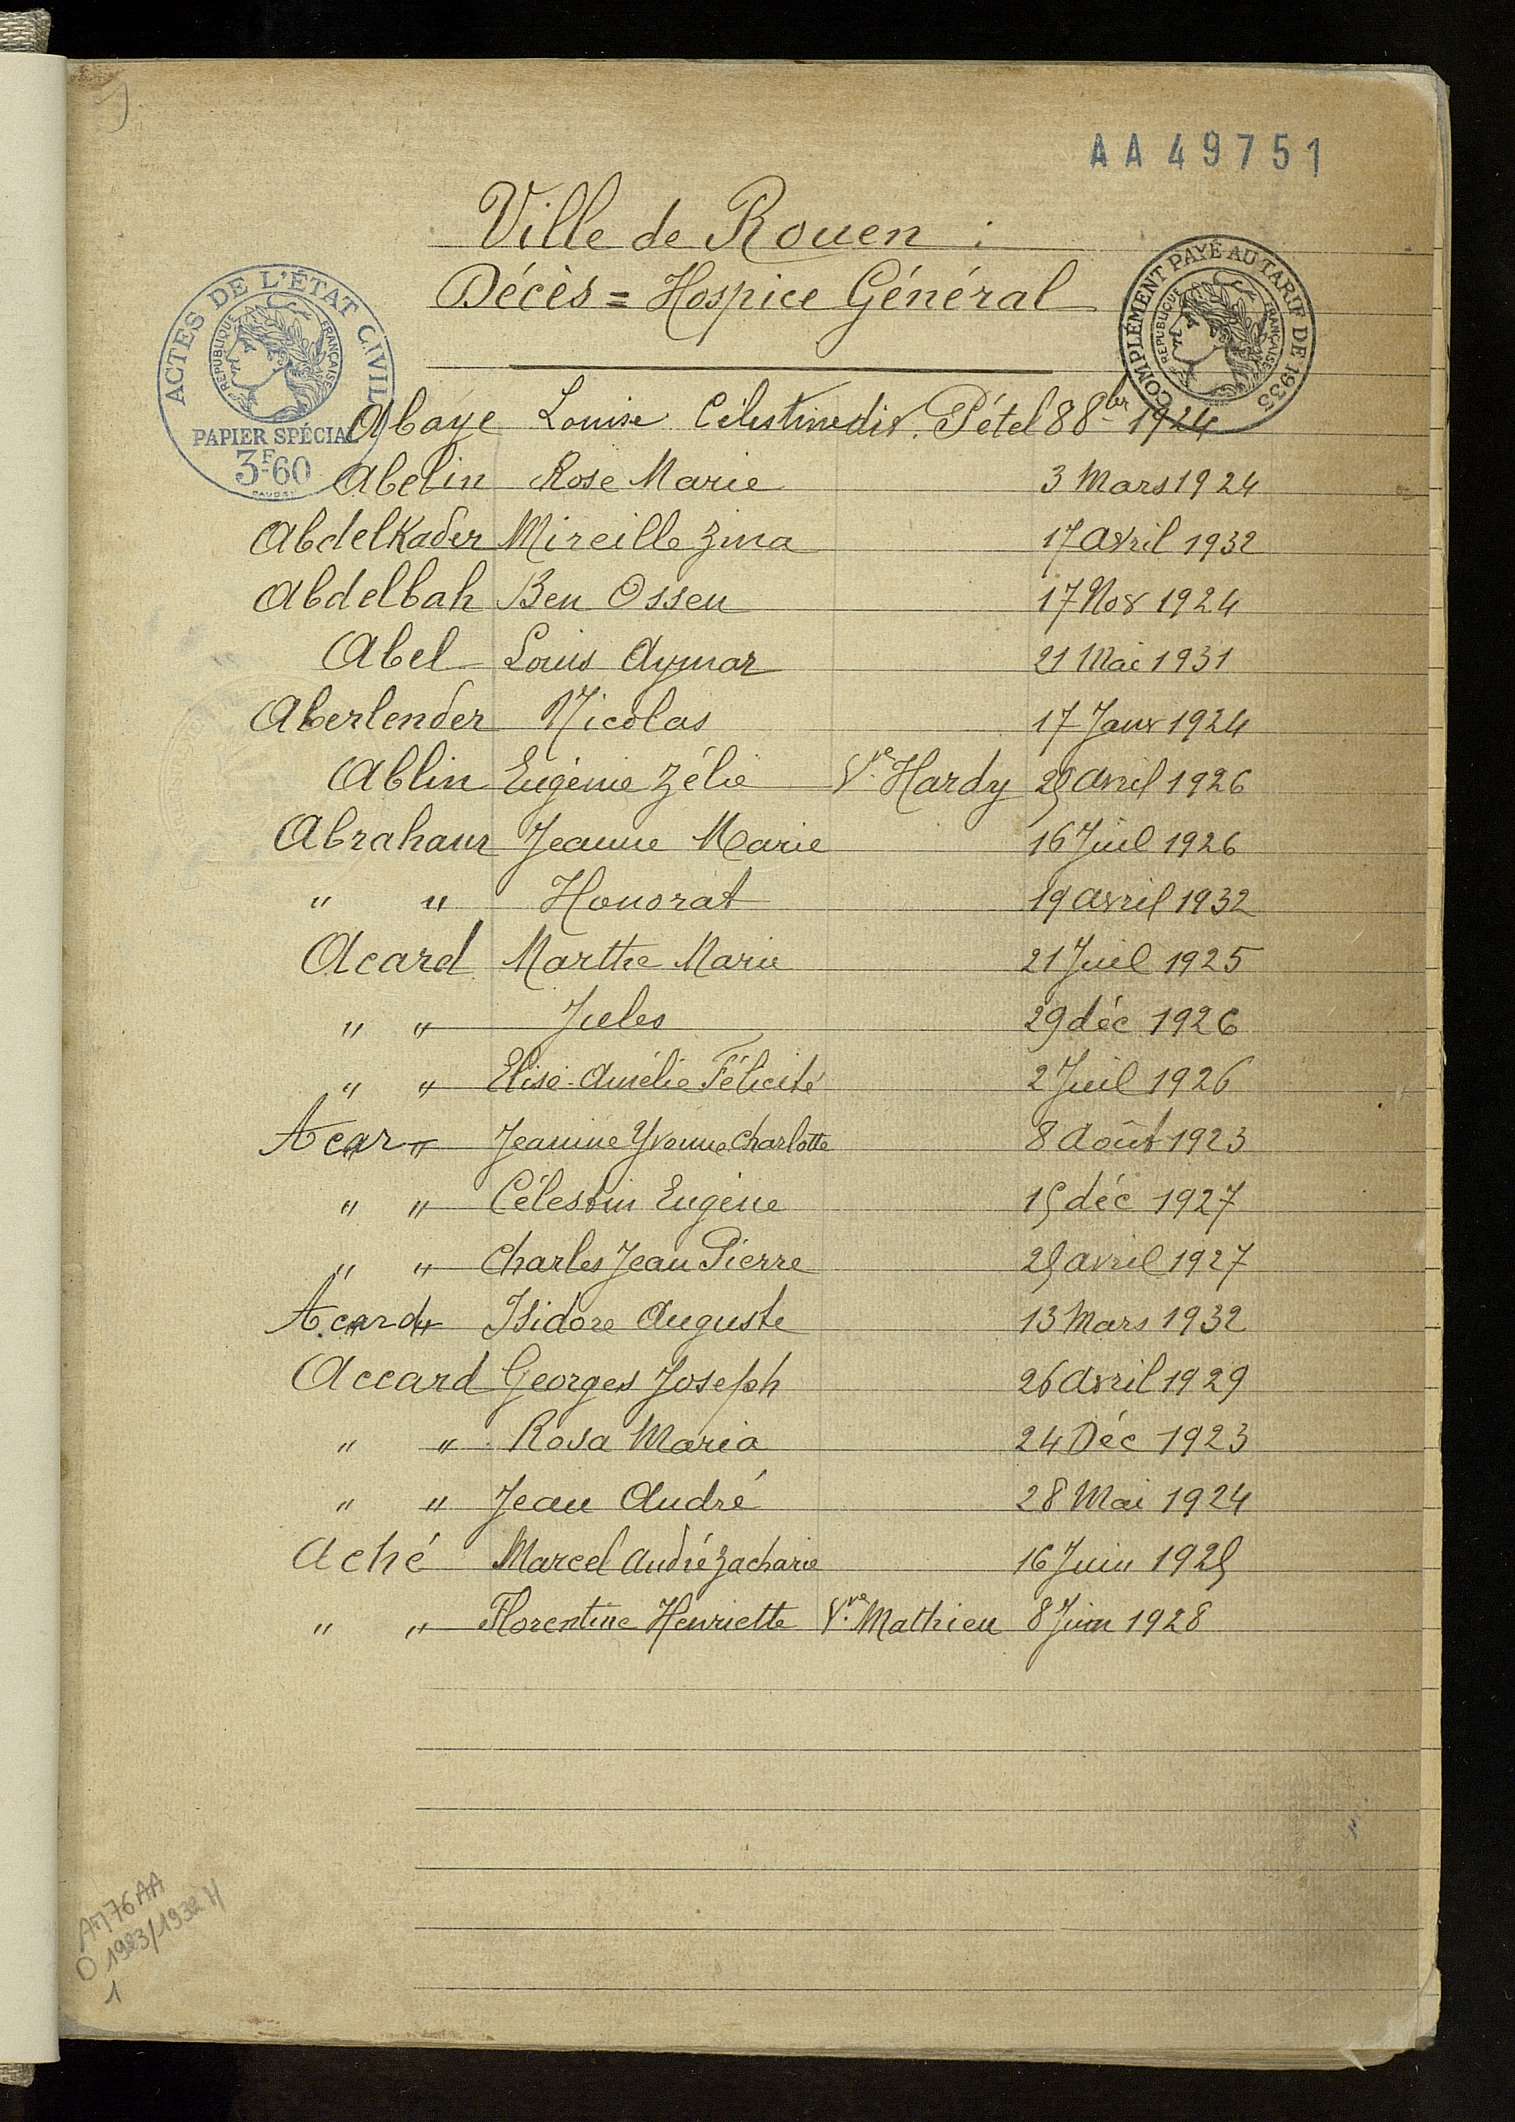 AA49751
Ville de Rouen :
Décès = Hospice Général
ACTES DE L'ÉTAT CIVIL
RÉPUBLIQUE FRANÇAISE
PAPIER SPÉCIAL
3F60
COMPLÉMENT PAYÉ AU TARIF DE 1935
RÉPUBLIQUE FRANÇAISE
Abaye Louise Célestine div. Pétel 8 8bre 1924
Abelin Rose Marie 3 Mars 1924
AbdelKader Mireille Zina 17 avril 1932
Abdelbah Ben Ossen 17 Nov 1924
Abel Louis Aymar 21 Mai 1931
Aberlender Nicolas 17 Janv 1924
Ablin Eugénie Zélie Vve Hardy 25 avril 1926
Abraham Jeanne Marie 16 Juil 1926
" " Honorat 19 avril 1932
Acard Marthe Marie 21 Juil 1925
" " Jules 29 déc 1926
" " Elise Amélie Félicité 2 Juil 1926
Acar " Jeanine Yvonne Charlotte 8 Août 1923
" " Célestin Eugène 15 déc 1927
" " Charles Jean Pierre 25 avril 1927
Acard " Isidore Auguste 13 Mars 1932
Accard Georges Joseph 26 avril 1929
" " Rosa Maria 24 Déc 1923
" " Jean André 28 Mai 1924
Aché Marcel André Zacharie 16 Juin 1925
" " Florentine Henriette Vve Mathieu 8 Juin 1928
AM76AA
D 1923/1932 H
1